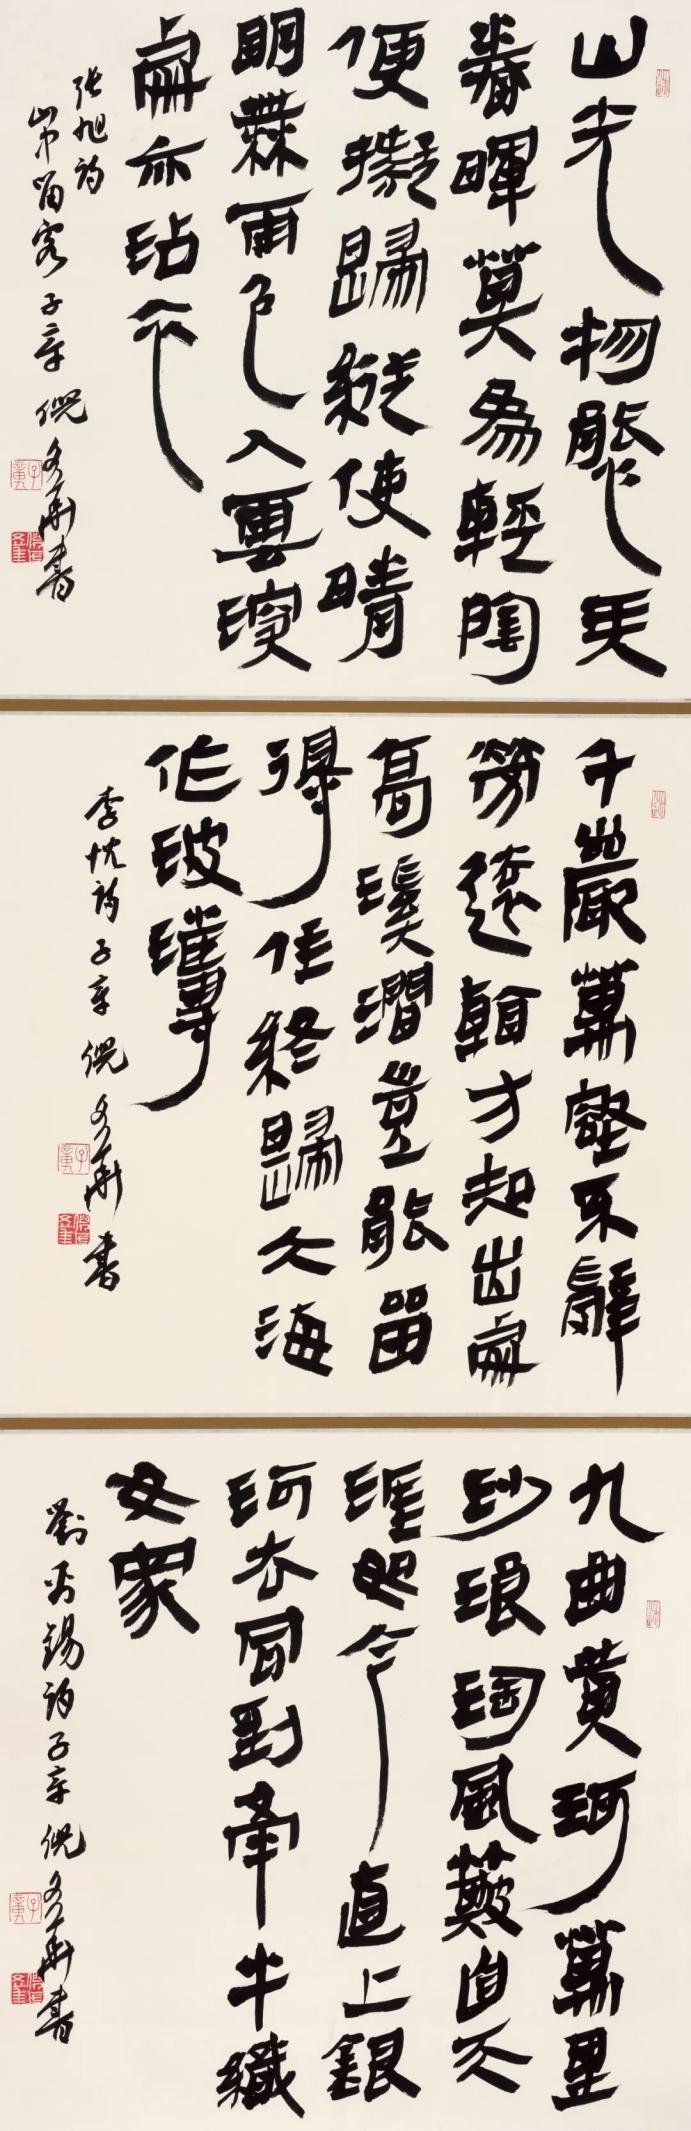 山光物態弄
春暉莫為輕陰
便擬歸縱使晴
明無雨色入雲深
處亦沾衣
張旭詩
山中留客 子年 倪文華書
千巖萬壑不辭
勞遠看方知出處
高溪澗豈能留
得住終歸大海
作波濤
李忱詩 子年 倪文華書
九曲黃河萬里
沙浪淘風簸自天
涯如今直上銀
河去同到牽牛織
女家
劉禹錫詩 子年 倪文華書